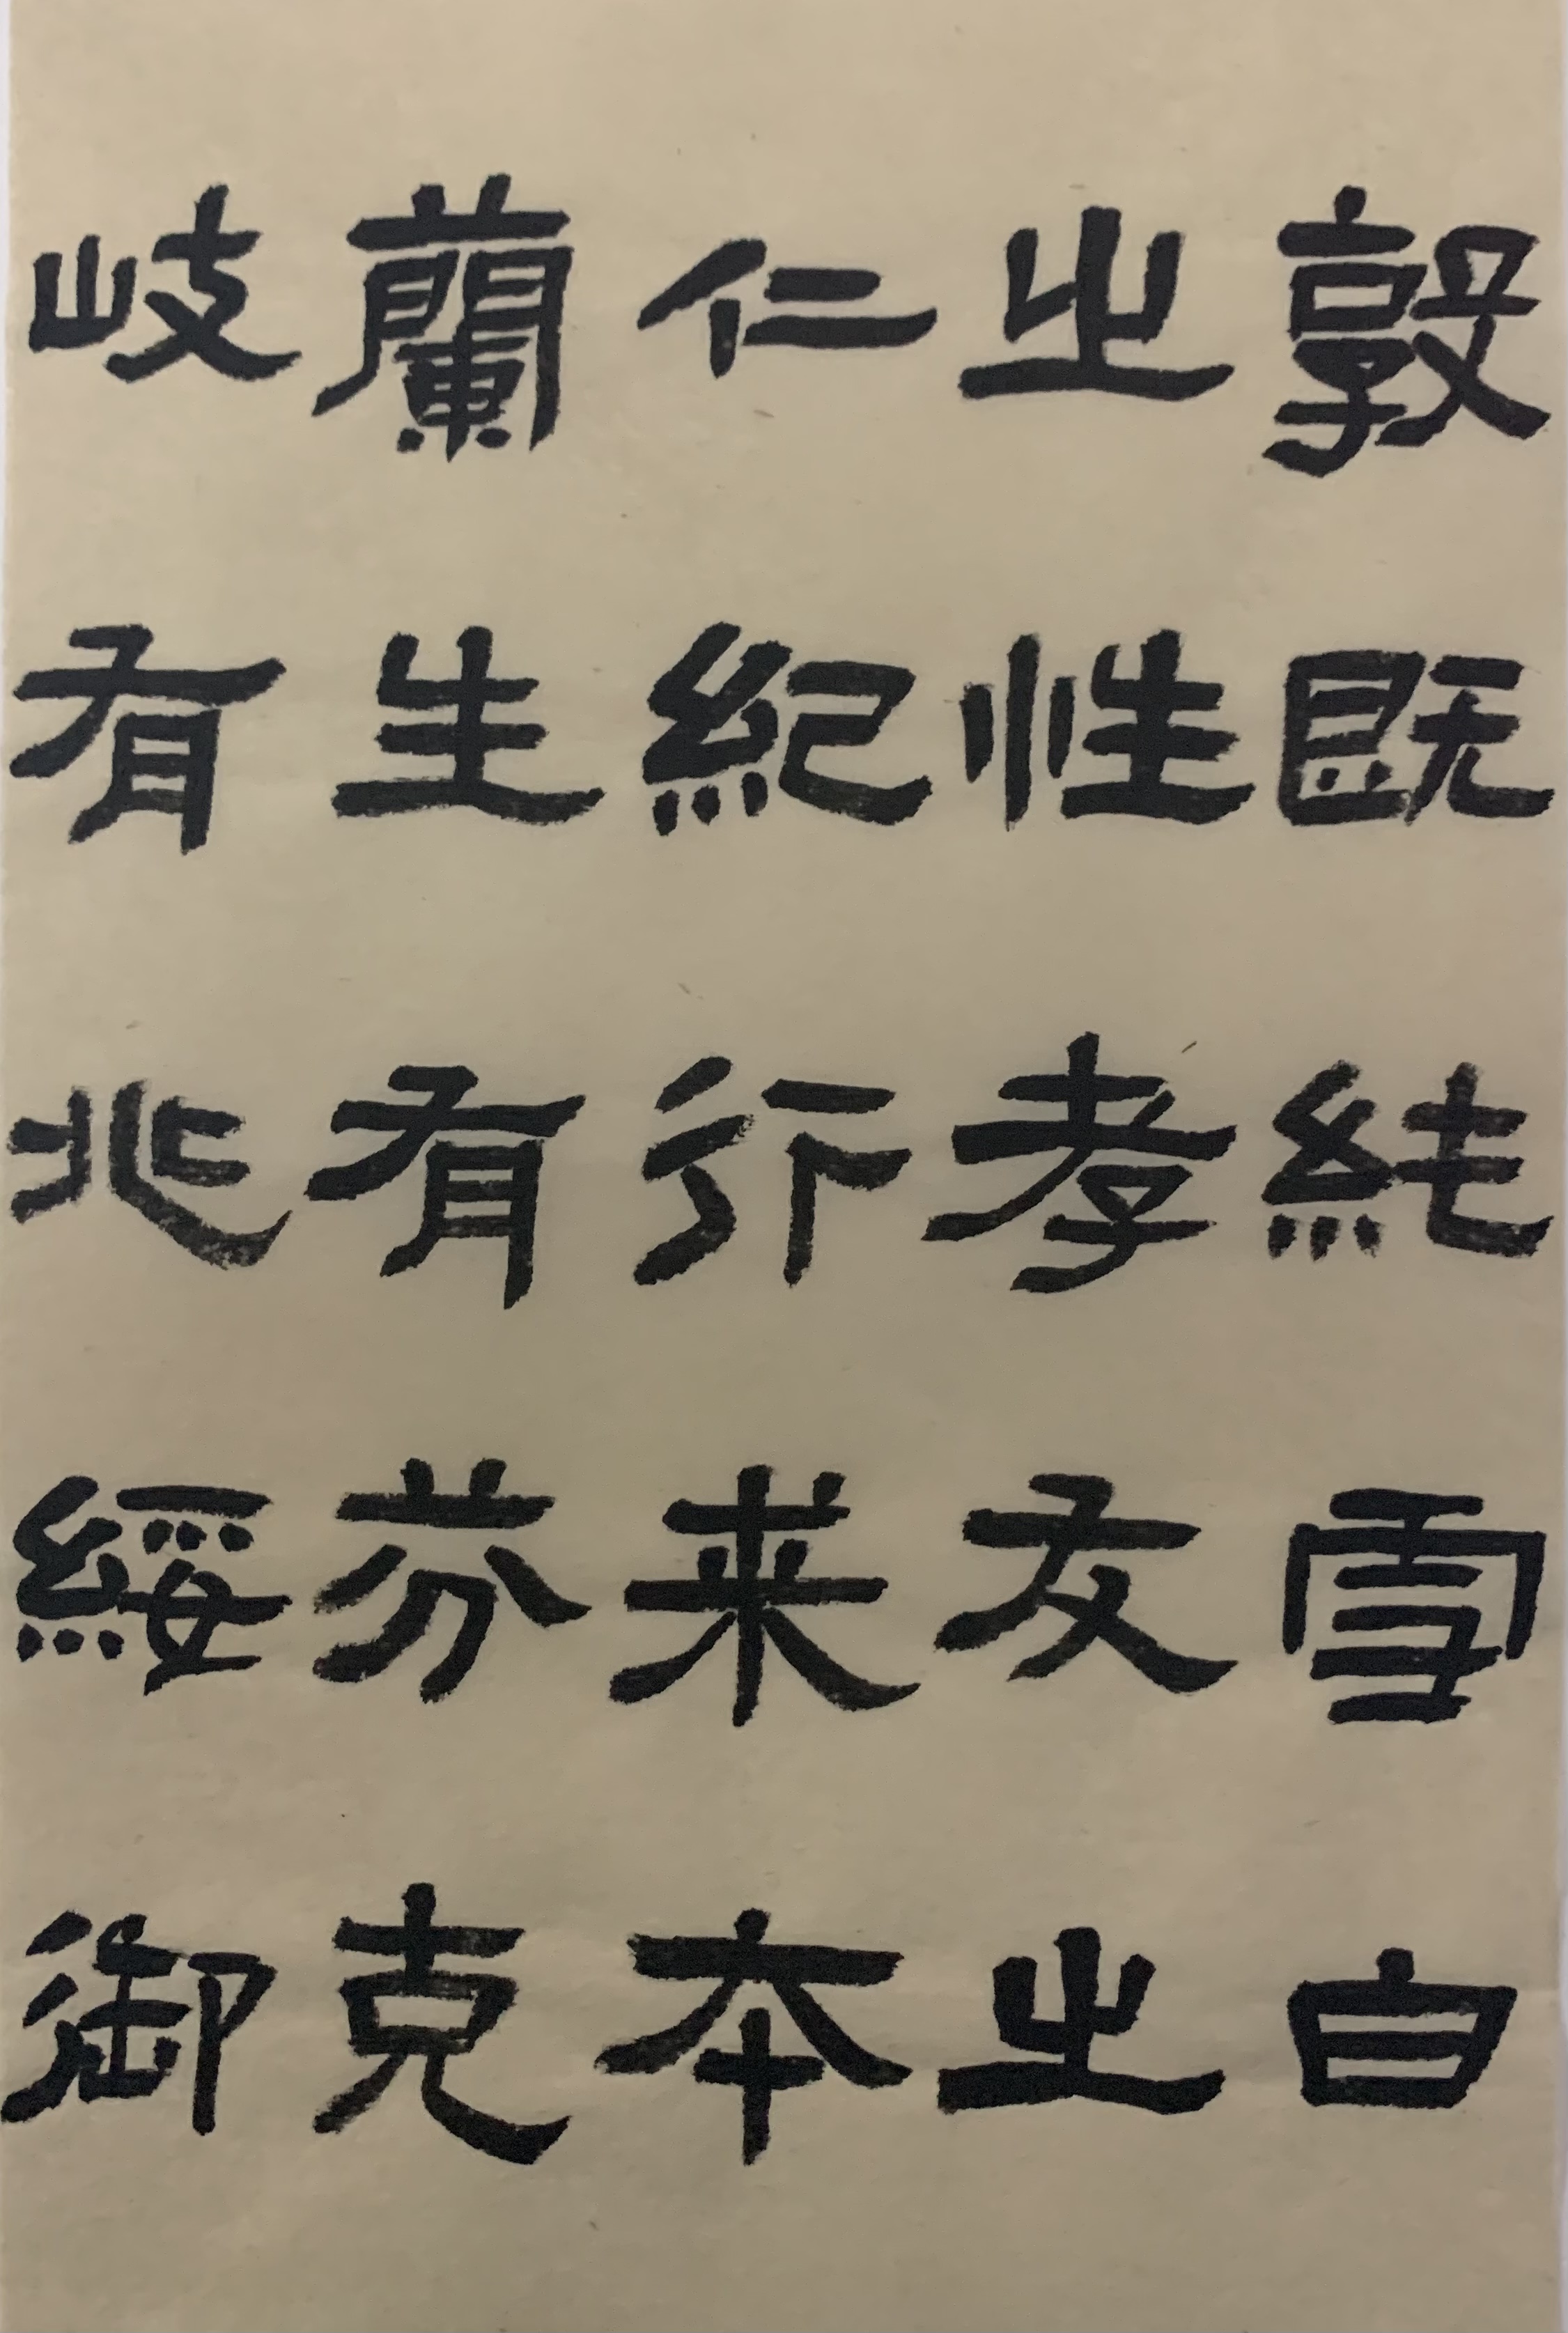 敦既純雪白
之性孝友之
仁紀行来本
蘭生有芬克
岐有兆綏御